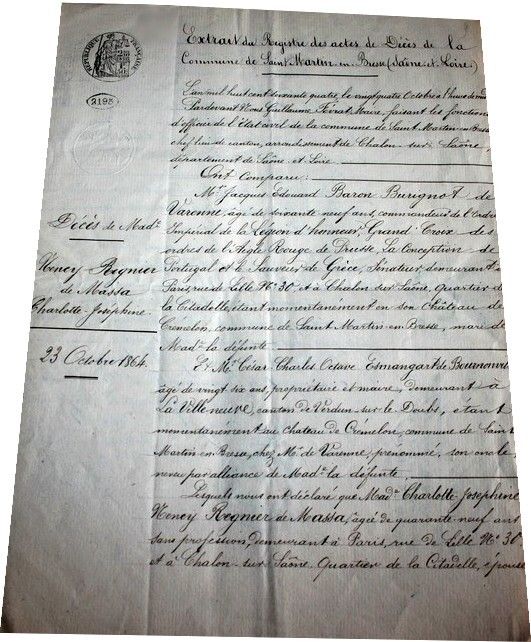 RÉPUBLIQUE FRANÇAISE
2195
Extrait du Registre des actes de Décès de la
Commune de Saint-Martin-en-Bresse (Saône-et-Loire)
L'an mil huit cent soixante quatre, le vingt quatre Octobre
Pardevant Nous Guillaume Maire, faisant les fonctions
d'officier de l'état civil de la commune de Saint-Martin-en-Bresse
chef lieu de canton, arrondissement de Chalon sur Saône,
département de Saône et Loire
Ont Comparu:
Mr. Jacques Edouard Baron Burignot de
Varenne, âgé de soixante neuf ans, commandeur de l'Ordre
Impérial de la Légion d'honneur, Grand Croix des
ordres de l'Aigle Rouge de Prusse, la Conception de
Portugal et le Sauveur de Grèce, Sénateur, demeurant à
Paris, rue de Lille No. 30 et à Chalon sur Saône, Quartier de
la Citadelle, étant momentanément en son Château de
Crémelon, commune de Saint Martin-en-Bresse, mari de
Made. la défunte
Et Mr. César Charles Octave Esmangart de Bournonville
âgé de vingt six ans, propriétaire et maire, demeurant à
La Villeneuve, canton de Verdun-sur-le Doubs, étant
momentanément au Chateau de Crémelon, commune de Saint
Martin-en-Bresse, chez Mr. de Varenne, prénommé, son oncle
neveu par alliance de Made. la défunte,
Lesquels nous ont déclaré que Made. Charlotte-Joséphine
Nency Regnier de Massa, âgée de quarante neuf ans
sans profession, demeurant à Paris, rue de Lille No. 30
et à Chalon-sur-Saône, Quartier de la Citadelle, épouse
Décès de Made.
Nency Regnier
de Massa
Charlotte-Joséphine
23 Octobre 1864.